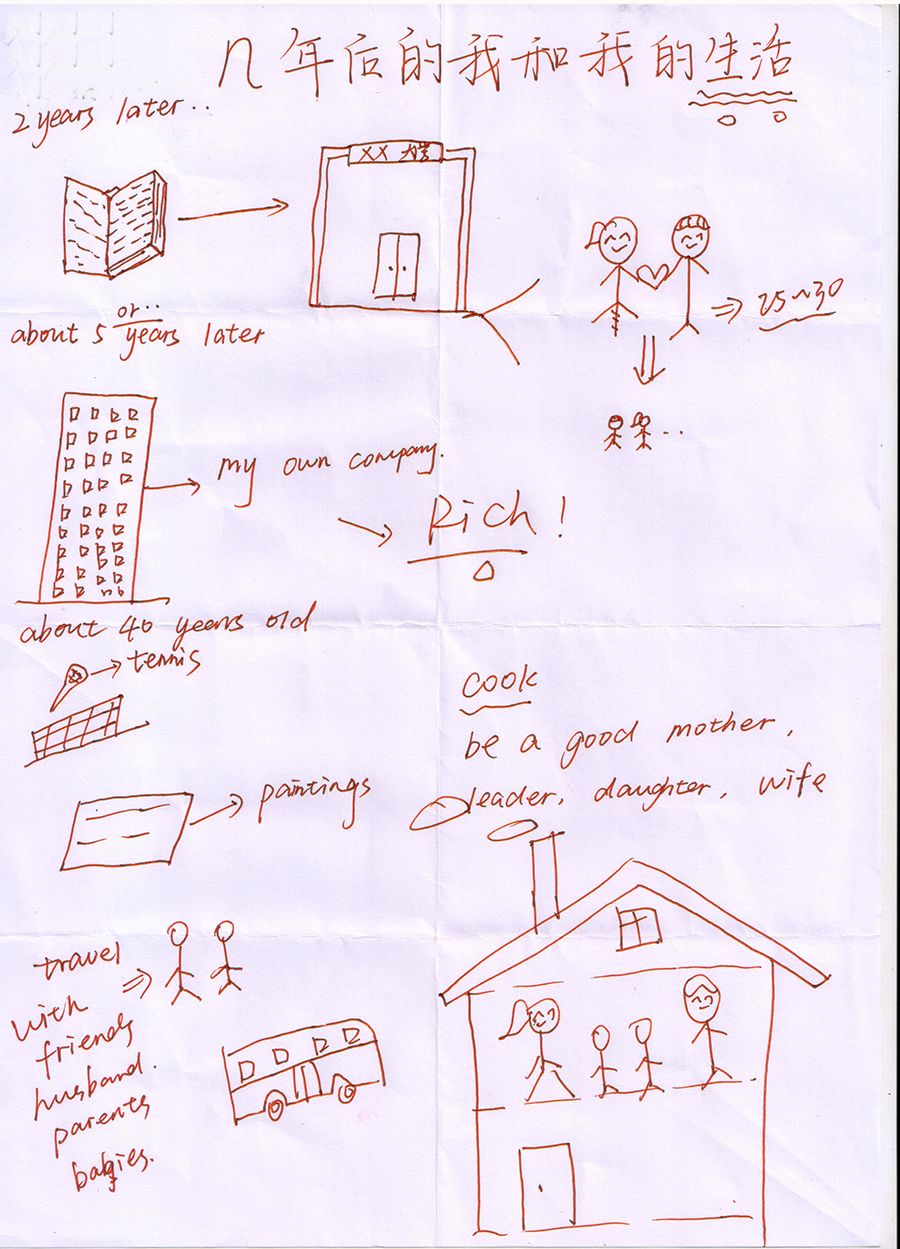 几年后的我和我的生活
2 years later..
XX 大学
25~30
or..
about 5 years later
my own company.
Rich!
about 40 years old
tennis
cook
be a good mother,
leader, daughter, wife
paintings
travel
with
friends
husband.
parents
babies.